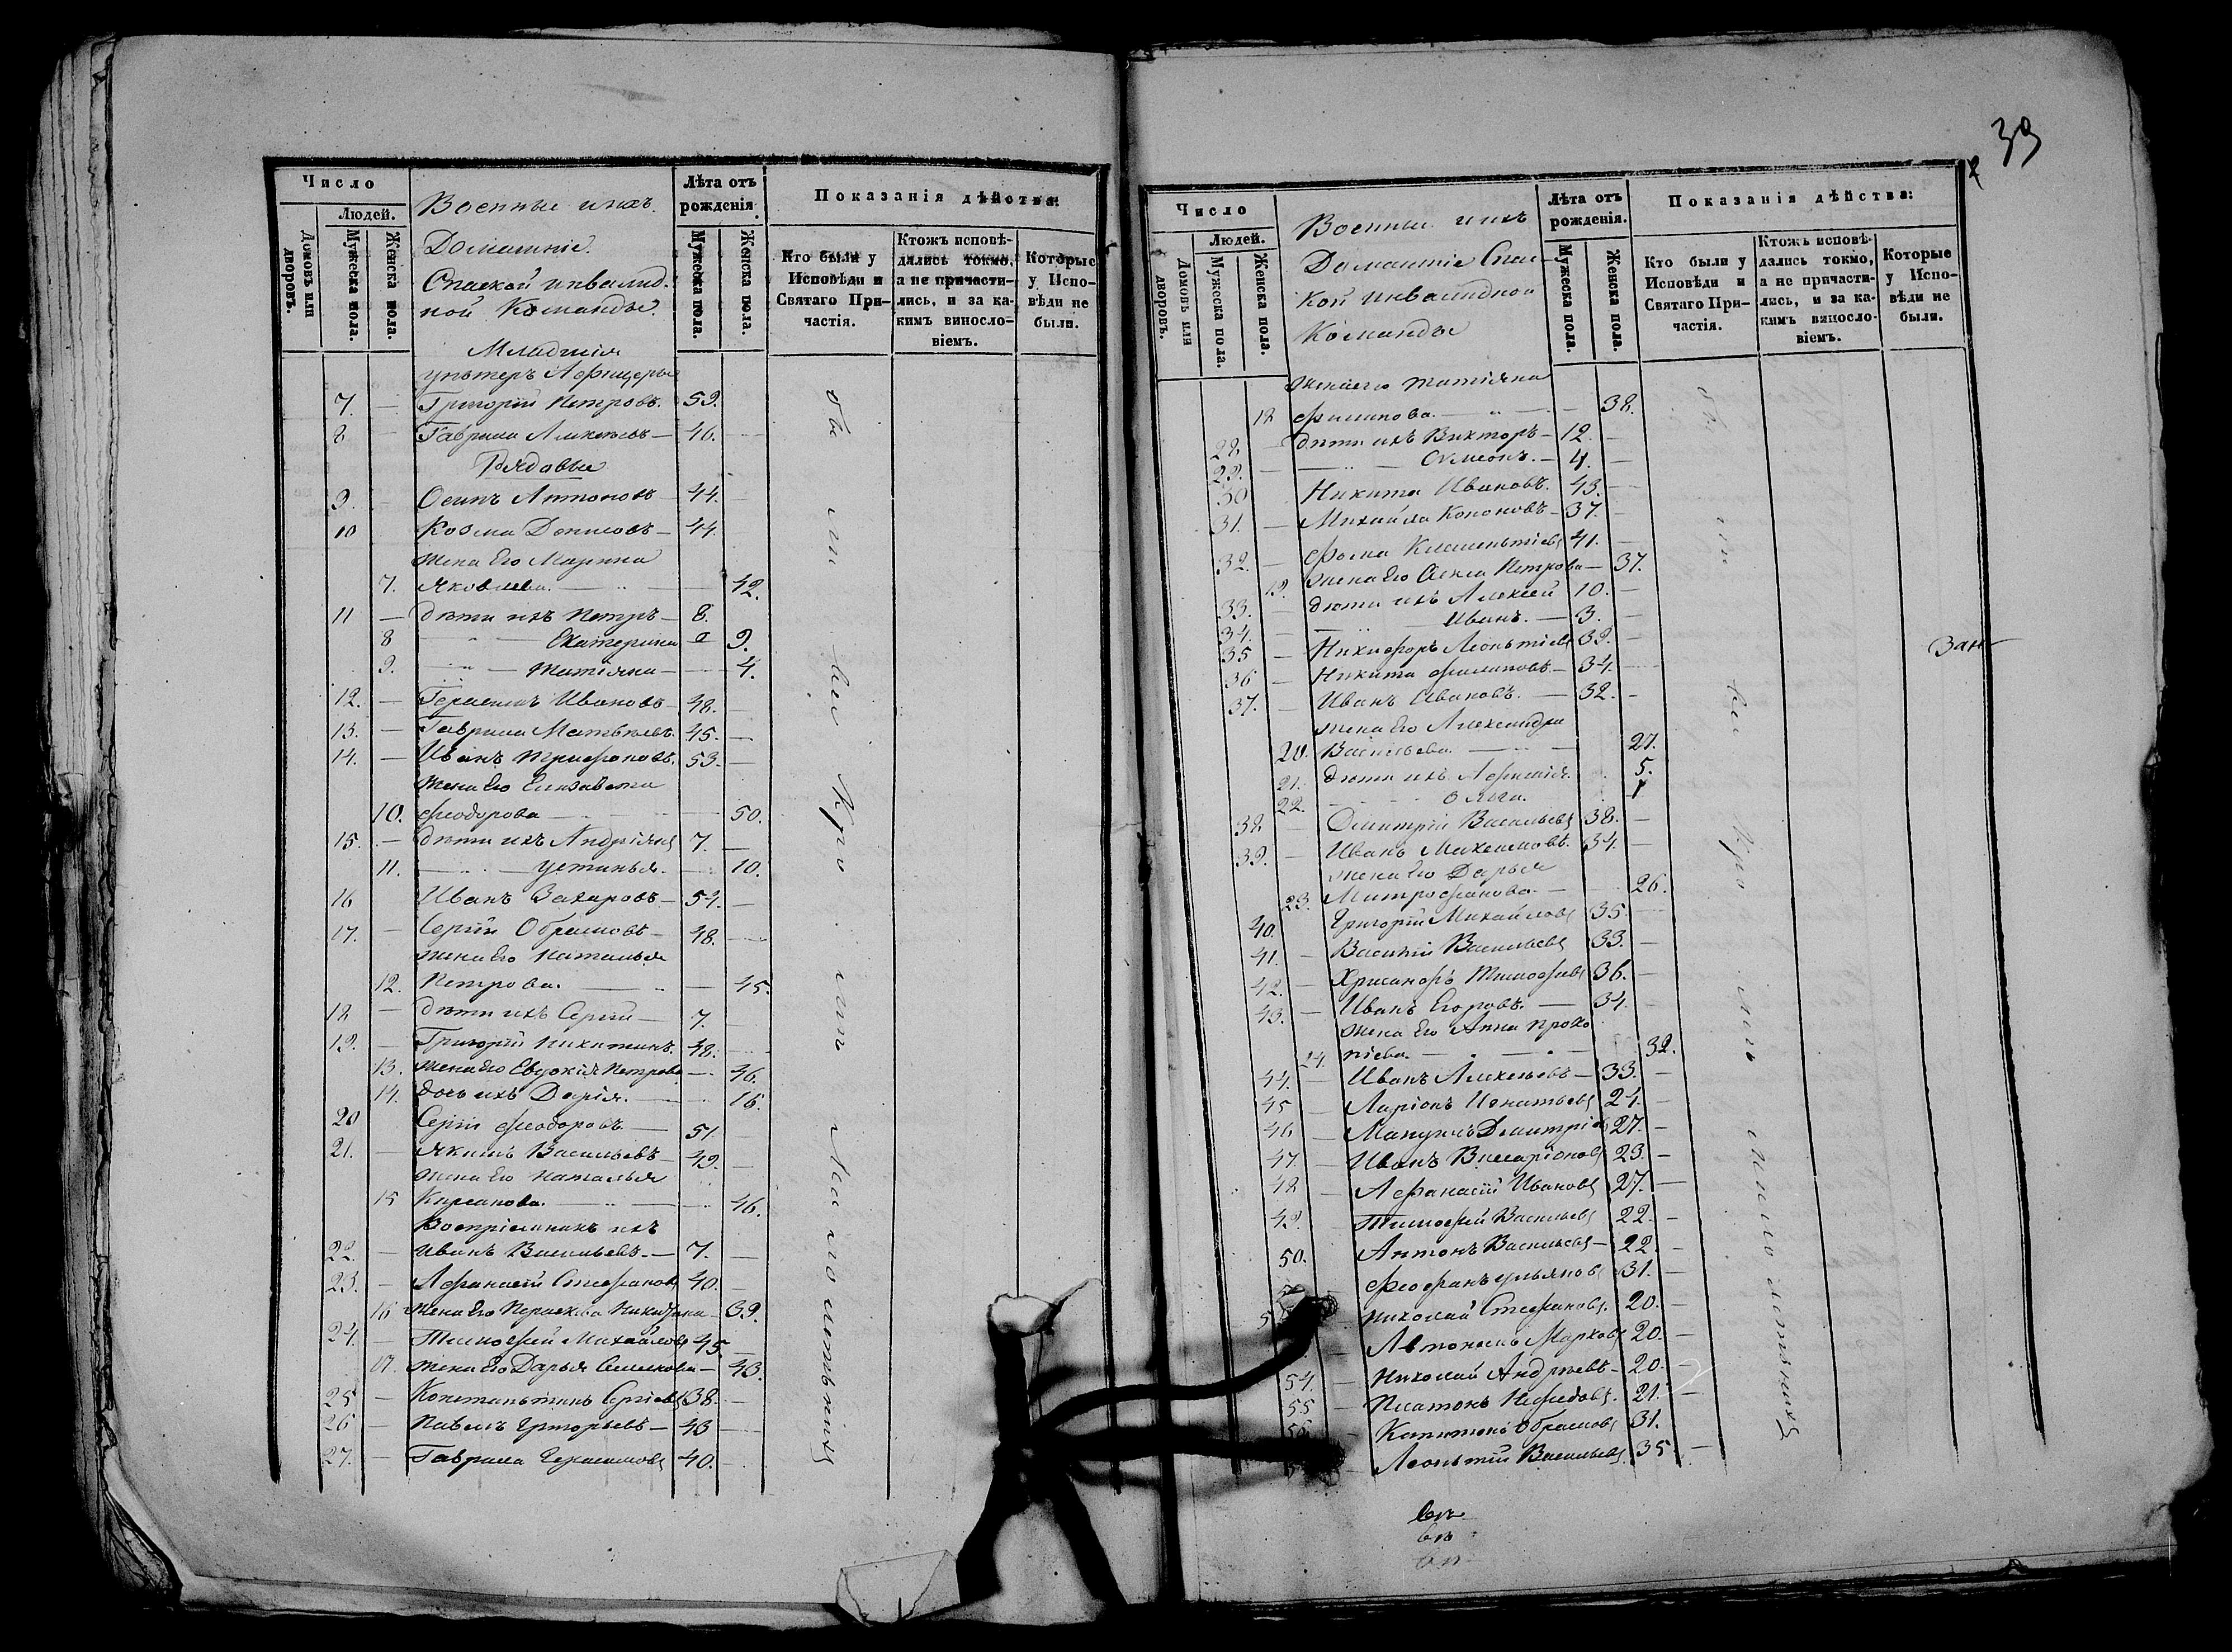 Число
Людей.
Домовъ или дворовъ.
Мужеска пола.
Женска пола.
Военные и ихъ
Домашніе
Спаской инвалид-
ной Команды.
Лѣта отъ рожденія.
Мужеска пола.
Женска пола.
Показанія дѣйства:
Кто были у Исповѣди и Святаго При-частія.
Ктожъ исповѣ-дались токмо, а не причасти-лись, и за ка-кимъ винослo-віемъ.
Которые у Испо-вѣди не были.
Младшія
унтеръ Афицеры
7. — Григорій Петровъ. 59.
8 — Гаврила Алексѣевъ — 46.
Рядовые
9. — Осипъ Антоновъ — 44.
10 Козма Денисовъ — 44.
жена Его Марина
7. Яковлева. — 42.
11 — дѣти ихъ Петръ — 8.
8 — Екатерина — 9.
9. — Татіяна — 4.
12. — Герасимъ Ивановъ — 48.
13. — Гаврила Матвѣевъ. 45. —
14. — Иванъ Трифоновъ. 53. —
жена Его Елизавета
10. Феодорова — 50.
15. — дѣти ихъ Андріянъ 7. —
11. — Устинья. — 10.
16 Иванъ Захаровъ — 54. —
17. — Сергій Обрамовъ — 48. —
жена Его Наталья
12. Петрова. — 45.
18 — дѣти ихъ Сергій — 7. —
19. — Григорій Никитинъ. 48. —
13. жена Его Евдокія Петрова — 46.
14. дочь ихъ Дарія. — 16.
20 Сергій Феодоровъ — 51. —
21. — Якимъ Васильевъ — 49. —
жена Его Наталья
15 Кирсанова. — 46.
Воспріемникъ ихъ
22. — Иванъ Васильевъ. — 7. —
23. — Афанасій Стефановъ 40. —
16 жена Его Параскева Никитина 39.
24. — Тимофей Михайловъ 45. —
17. жена Его Дарья Семенова — 43.
25 — Констаньтинъ Сергіевъ 38. —
26 — Павелъ Григорьевъ — 43 —
27. — Гаврила Герасимовъ 40. —
39
Число
Людей.
Домовъ или дворовъ.
Мужеска пола.
Женска пола.
Военныи и ихъ
Домашніе Спас-
кой инвалидной
Команды
Лѣта отъ рожденія.
Мужеска пола.
Женска пола.
Показанія дѣйства:
Кто были у Исповѣди и Святаго При-частія.
Ктожъ исповѣ-дались токмо, а не причасти-лись, и за ка-кимъ винослo-віемъ.
Которые у Испо-вѣди не были.
жена его Татіяна
18 Филипова. — 38.
28 — дѣти ихъ Викторъ — 12. —
29. — Симеонъ. — 4. —
30 Никита Ивановъ. 43. —
31. — Михайла Кононовъ — 37. —
32. — Фома Клименьтіевъ 41. —
19. жена Его Фекла Петрова — 37.
33. — дѣти ихъ Алексей 10. —
34. — Иванъ. — 3. —
35 — Никифоръ Леоньтіевъ 39. —
36 — Никита Филиповъ. — 34. —
37. — Иванъ Ивановъ. — 32. —
жена Его Александра
20. Васильева. — 27.
21. дѣти ихъ Афимія. 5.
22. Ольга. 1
38 — Дмитрій Васильевъ 38. —
39. — Иванъ Максимовъ. 34. —
жена Его Дарья
23. Митрофанова. — 26.
40. Григорій Михайловъ 35. —
41. — Василій Васильевъ 33. —
42. — Хрисанфъ Тимофеевъ 36. —
43. — Иванъ Егоровъ. — 34. —
жена Его Анна Проко
24. піева. — 32.
44. — Иванъ Алексѣевъ — 33. —
45 — Ларіонъ Игнатьевъ 24. —
46 — Мануилъ Дмитріевъ 27. —
47. — Иванъ Висаріоновъ 23. —
48 — Афанасій Ивановъ 27. —
49. — Тимофей Васильевъ 22. —
50. — Антонъ Васильевъ — 22. —
Феофанъ Ульяновъ 31. —
Николай Стефановъ. 20. —
— Автономъ Марковъ 20. —
54. — Николай Андреевъ — 20. —
55 — Платонъ Нефедовъ. 21. —
56. — Капитонъ Обрамовъ 31.
— Леоньтій Васильевъ. 35. —